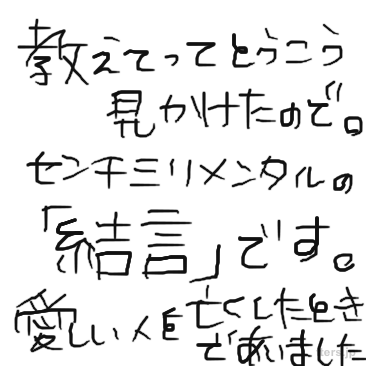 教えてってとうこう
見かけたので。
センチミリメンタルの
「結言」です。
愛しい人を亡くしたとき
であいました